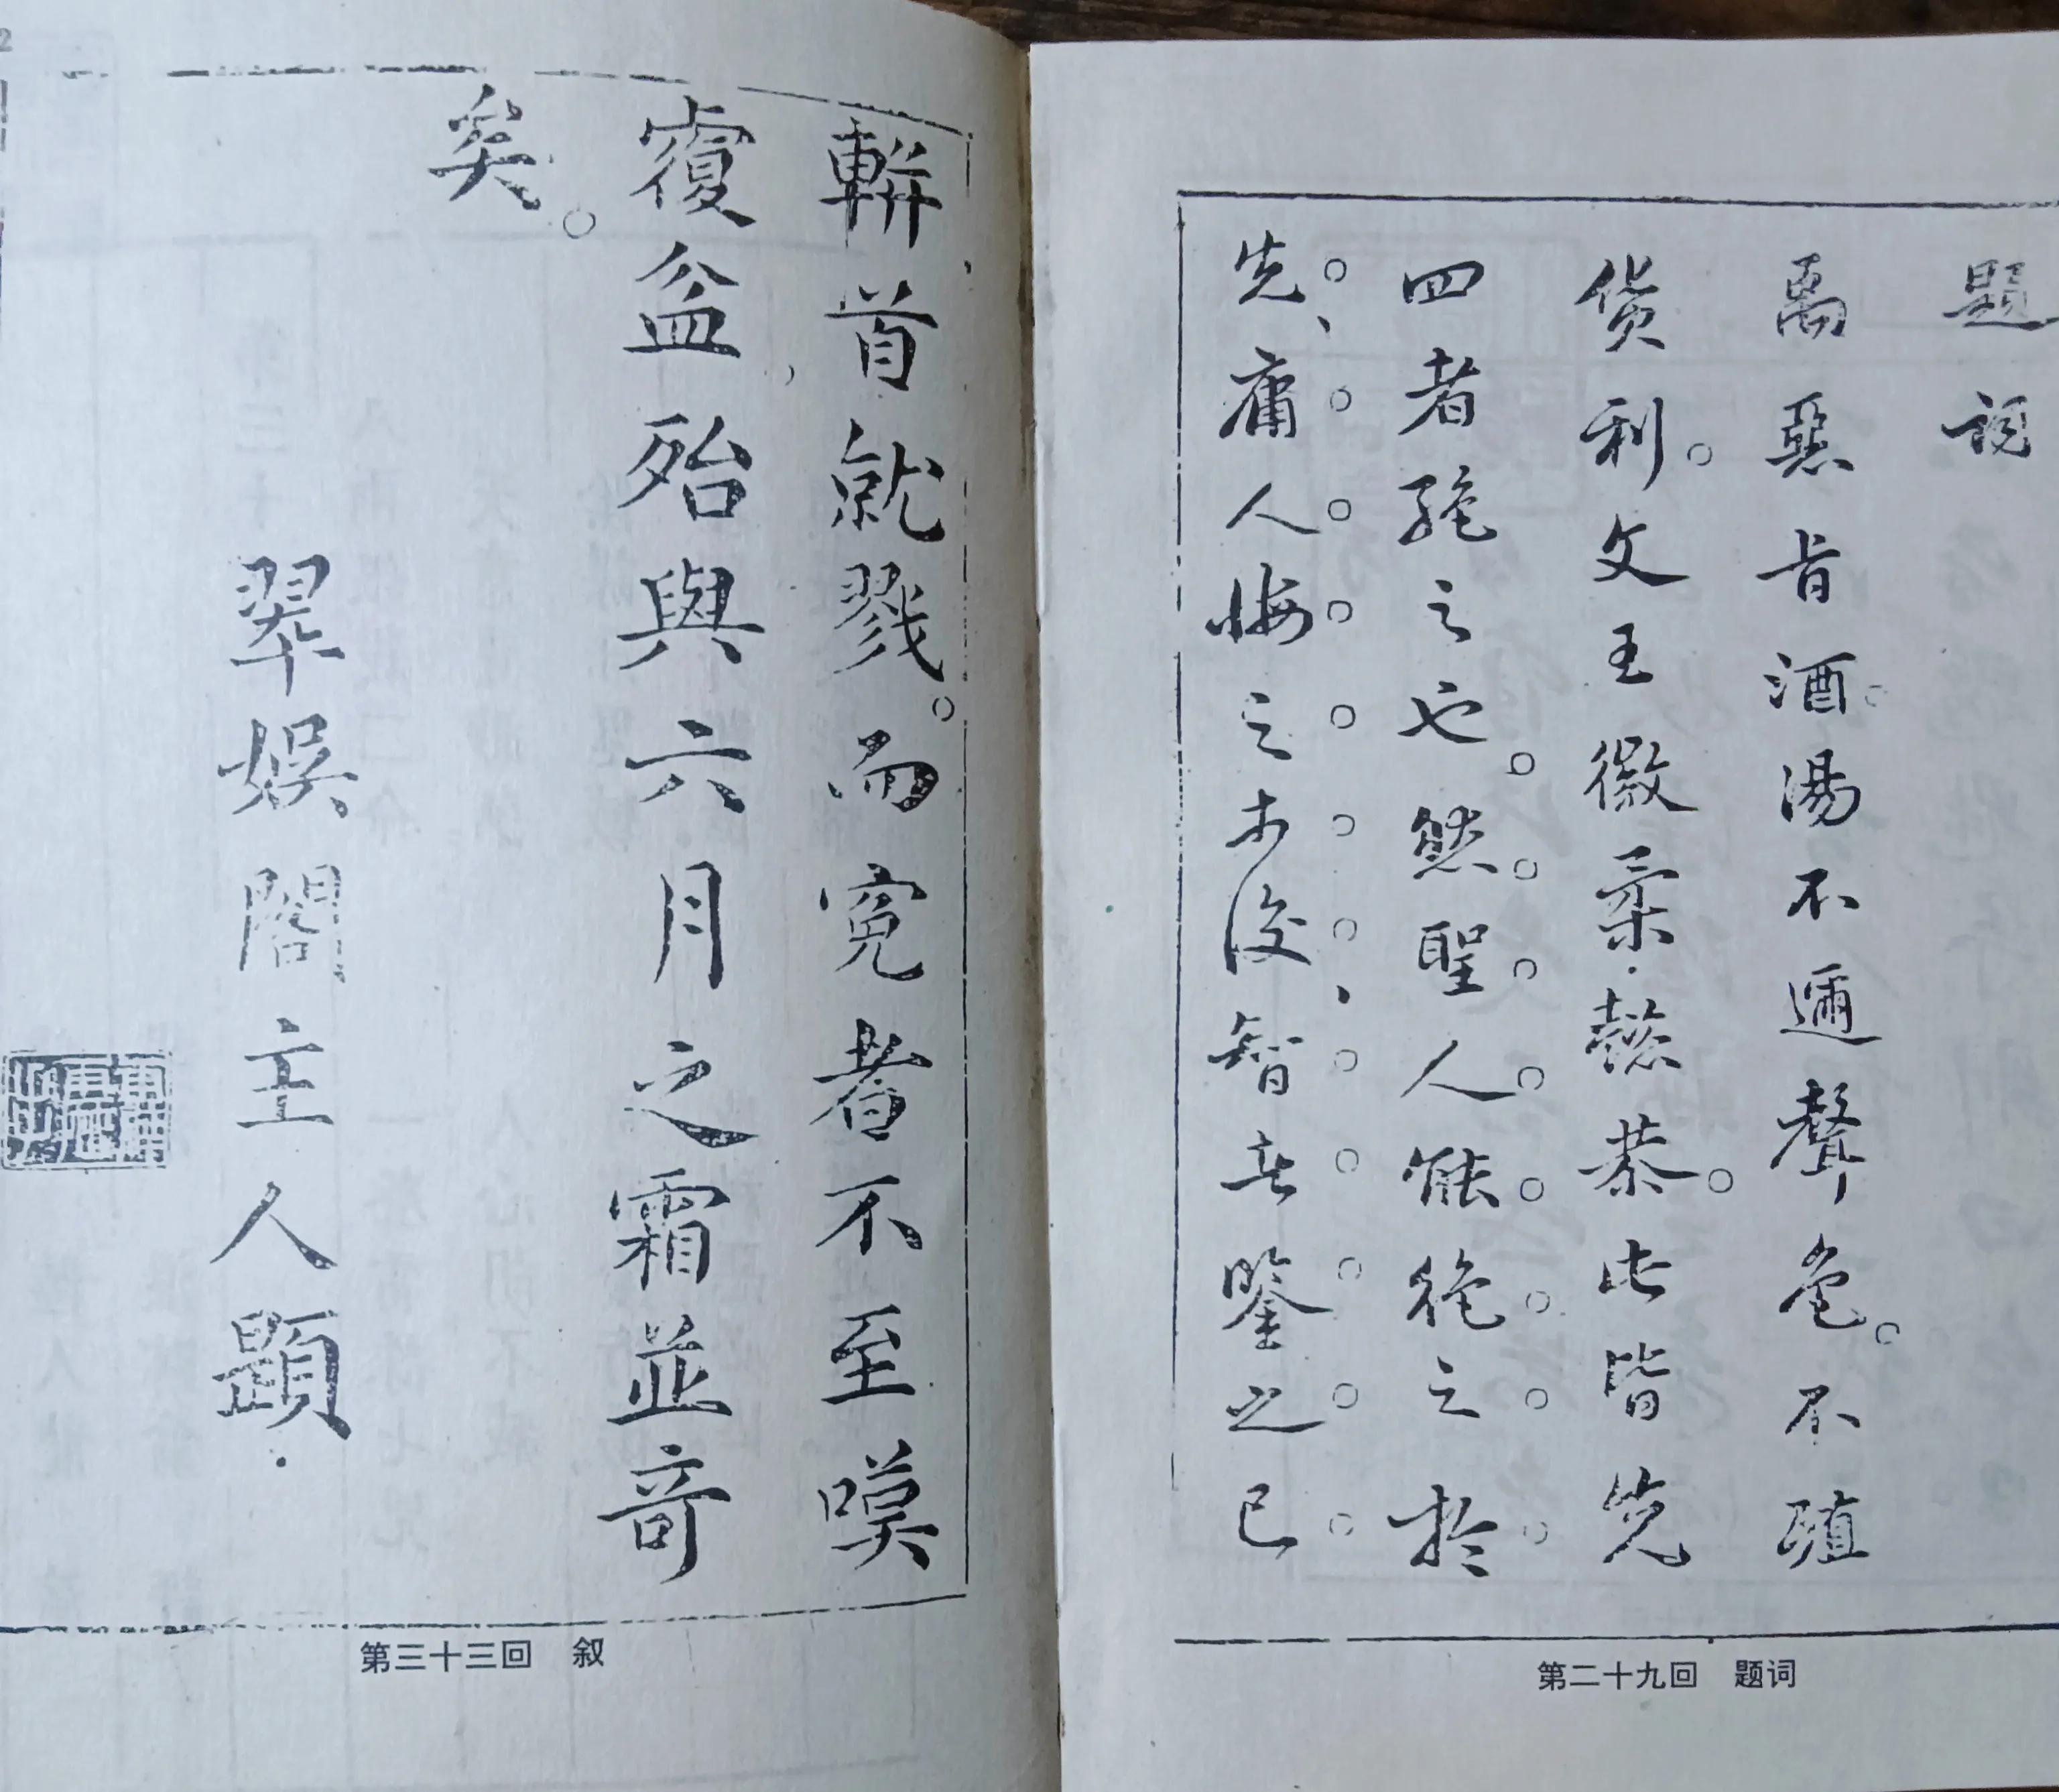 題詞
禹惡旨酒。湯不邇聲色。不殖
貨利。文王徽柔懿恭。此皆先
四者絕之也。然聖人能絕之於
先、庸人悔之於後、智者鑒之已
第二十九回 题词
軿首就戮。而冤者不至嘆
覆盆殆與六月之霜並奇
矣。
翠娛閣主人題
第三十三回 叙